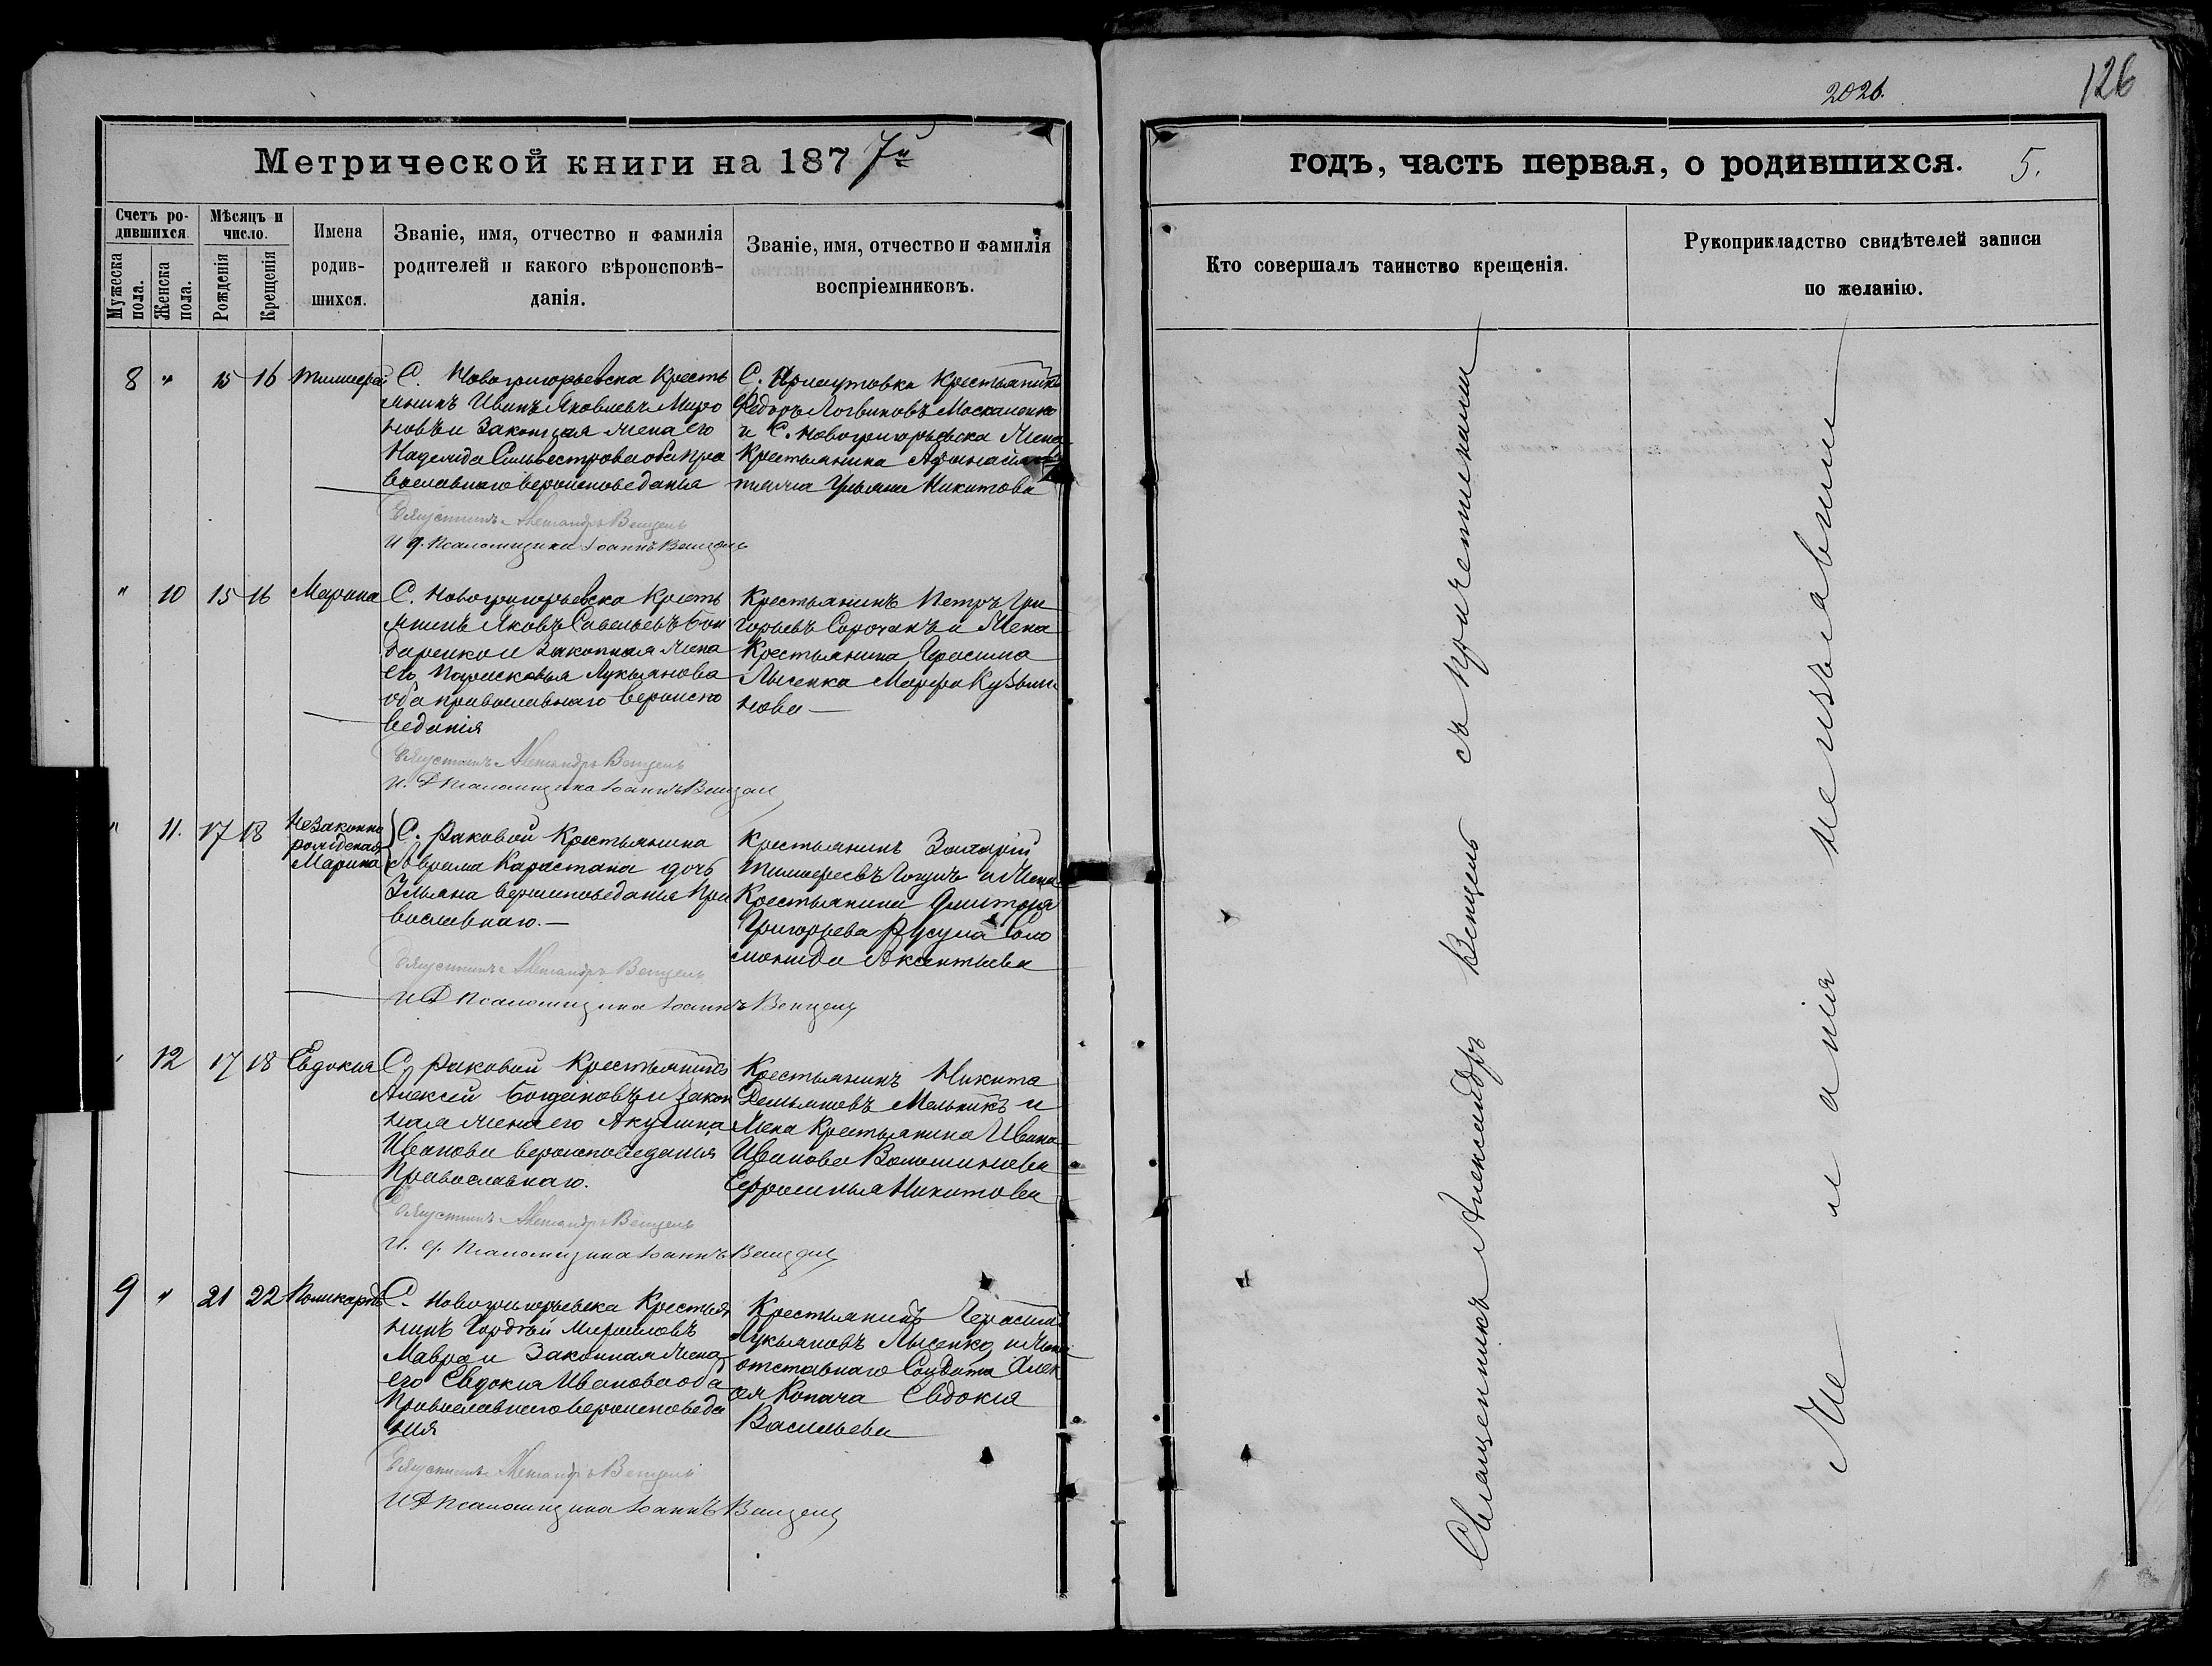 2026.
126
Метрической книги на 187 7й
годъ, часть первая, о родившихся. 5.
Счетъ ро-
дившихся.
Мужеска
пола.
Женска
пола.
Мѣсяцъ и
число.
Рожденія
Крещенія
Имена
родив-
шихся.
Званіе, имя, отчество и фамилія
родителей и какого вѣроисповѣ-
данія.
Званіе, имя, отчество и фамилія
воспріемниковъ.
Кто совершалъ таинство крещенія.
Рукоприкладство свидѣтелей записи
по желанію.
8 " 15 16 Тимофей
С. Новогригорьевска Кресть
янинъ Иванъ Яковлевъ Миро
новъ и Законная жена его
Надежда Сильвестрова оба пра
вославнаго вероисповеданія
С. Крестьянинъ
Федоръ Логвиновъ Москаленко
и С. Новогригорьевска Жена
Крестьянина
Ульяна Никитова
Александръ Венцель
И д. Псаломщика Іоаннъ Венцель
" 10 15 16 Марина
С. Новогригорьевска Кресть
янинъ Яковъ Савельевъ Бон
даренко и Законная жена
его Парасковья Лукьянова
оба православнаго вероиспо
веданія
Крестьянинъ Петръ Гри
горьевъ Сорочанъ и Жена
Крестьянина Герасима
Лысенка Марфа Кузьми
нова
Александръ Венцель
И. Д Псаломщика Іоаннъ Венцель
" 11. 17 18
Незаконно
рожденная
Марина
С. Раковой Крестьянина
Аврама Карастана дочь
Ульяна вероисповеданія Пра
вославнаго.
Крестьянинъ Захарій
Тимофеевъ и Жена
Крестьянина Дмитрія
Григорьева Русула Соло
монида Аксентьева
Александръ Венцель
И Д Псаломщика Іоаннъ Венцель
12 17 18 Евдокия
С. Раковой Крестьянинъ
Алексей и Закон
ная жена его Акулина
Иванова вероисповеданія
Православнаго.
Крестьянинъ Никита
Демьяновъ Мельникъ и
Жена Крестьянина Ивана
Иванова Волошинова
Ефросинья Никитова
Александръ Венцель
И. д. Псаломщика Іоаннъ Венцель
9 " 21 22 Поликарпъ
С. Новогригорьевска Крестья
нинъ Гордѣй
Мавро и Законная жена
его Евдокия Иванова оба
Православнаго вероисповеда
ния
Крестьянинъ Герасимъ
Лукьяновъ Лысенко и жена
отставнаго Солдата Алек
ея Копача Евдокия
Васильева
Александръ Венцель
И Д Псаломщика Іоаннъ Венцель
Священникъ Александръ Венцель съ причетниками
Не изъявили